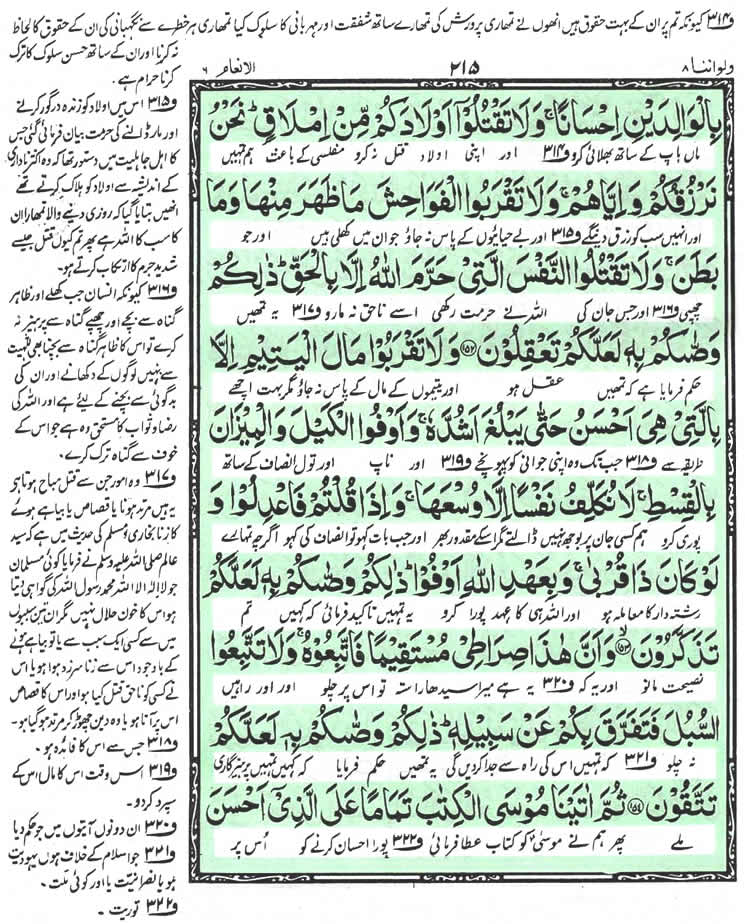 و۳۱۴ کیونکہ تم پر ان کے بہت حقوق ہیں انھوں نے تمھاری پرورش کی تمھارے ساتھ شفقت اور مہربانی کا سلوک کیا تمھاری ہر خطرے سے نگہبانی کی ان کے حقوق کا لحاظ
نہ کرنا اور ان کے ساتھ حسن سلوک کا ترک
کرنا حرام ہے۔
ولواننا ۸
۲۱۵
الانعام ۶
بِالْوَالِدَیْنِ اِحْسَانًا ۚ وَلَا تَقْتُلُوْۤا اَوْلَادَكُمْ مِّنْ اِمْلَاقٍ ؕ نَحْنُ
ماں باپ کے ساتھ بھلائی کرو و۳۱۴ اور اپنی اولاد قتل نہ کرو مفلسی کے باعث ہم تمہیں
نَرْزُقُكُمْ وَاِیَّاهُمْ ۚ وَلَا تَقْرَبُوا الْفَوَاحِشَ مَا ظَهَرَ مِنْهَا وَمَا
اور انہیں سب کو رزق دینگے و۳۱۵ اور بے حیائیوں کے پاس نہ جاؤ جو ان میں کھلی ہیں اور جو
بَطَنَ ۚ وَلَا تَقْتُلُوا النَّفْسَ الَّتِیْ حَرَّمَ اللّٰهُ اِلَّا بِالْحَقِّ ؕ ذٰلِكُمْ
چھپی و۳۱۶ اور جس جان کی اللہ نے حرمت رکھی اسے ناحق نہ مارو و۳۱۷ یہ تمھیں
وَصّٰكُمْ بِهٖ لَعَلَّكُمْ تَعْقِلُوْنَ ﴿۱۵۲﴾ وَلَا تَقْرَبُوْا مَالَ الْیَتِیْمِ اِلَّا
حکم فرمایا ہے کہ تمھیں عقل ہو اور یتیموں کے مال کے پاس نہ جاؤ مگر بہت اچھے
بِالَّتِیْ هِیَ اَحْسَنُ حَتّٰی یَبْلُغَ اَشُدَّهٗ ۚ وَاَوْفُوا الْكَیْلَ وَالْمِیْزَانَ
طریقہ سے و۳۱۸ جب تک وہ اپنی جوانی کو پہونچے و۳۱۹ اور ناپ اور تول انصاف کے ساتھ
بِالْقِسْطِ ۚ لَا نُكَلِّفُ نَفْسًا اِلَّا وُسْعَهَا ۚ وَاِذَا قُلْتُمْ فَاعْدِلُوْا وَ
پوری کرو ہم کسی جان پر بوجھ نہیں ڈالتے مگر اسکے مقدور بھر اور جب بات کہو تو انصاف کی کہو اگرچہ تمہارے
لَوْ كَانَ ذَا قُرْبٰی ۚ وَبِعَهْدِ اللّٰهِ اَوْفُوْا ؕ ذٰلِكُمْ وَصّٰكُمْ بِهٖ لَعَلَّكُمْ
رشتہ دار کا معاملہ ہو اور اللہ ہی کا عہد پورا کرو یہ تمہیں تاکید فرمائی کہ کہیں تم
تَذَكَّرُوْنَ ﴿۱۵۳﴾ وَاَنَّ هٰذَا صِرَاطِیْ مُسْتَقِیْمًا فَاتَّبِعُوْهُ ۚ وَلَا تَتَّبِعُوا
نصیحت مانو اور یہ کہ و۳۲۰ یہ ہے میرا سیدھا راستہ تو اس پر چلو اور اور راہیں
السُّبُلَ فَتَفَرَّقَ بِكُمْ عَنْ سَبِیْلِهٖ ؕ ذٰلِكُمْ وَصّٰكُمْ بِهٖ لَعَلَّكُمْ
نہ چلو و۳۲۱ کہ تمہیں اس کی راہ سے جدا کردیں گی یہ تمھیں حکم فرمایا کہ کہیں تمہیں پرہیزگاری
تَتَّقُوْنَ ﴿۱۵۴﴾ ثُمَّ اٰتَیْنَا مُوْسَی الْكِتٰبَ تَمَامًا عَلَی الَّذِیْۤ اَحْسَنَ
ملے پھر ہم نے موسیٰ کو کتاب عطا فرمائی و۳۲۲ پورا احسان کرنے کو اُس پر
و۳۱۵ اس میں اولاد کو زندہ درگور کرنے
اور مار ڈالنے کی حرمت بیان فرمائی گئی جس
کا اہل جاہلیت میں دستور تھا کہ وہ اکثر ناداری
کے اندیشہ سے اولاد کو ہلاک کرتے تھے
انھیں بتایا گیا کہ روزی دینے والا تمھارا ان
کا سب کا اللہ ہے پھر تم کیوں قتل جیسے
شدید جرم کا ارتکاب کرتے ہو۔
و۳۱۶ کیونکہ انسان جب کھلے اور ظاہر
گناہ سے بچے اور چھپے گناہ سے پرہیز نہ
کرے تو اس کا ظاہر گناہ سے بچنا بھی للہیت
سے نہیں لوگوں کے دکھانے اور ان کی
بدگوئی سے بچنے کے لیے ہے اور اللہ کی
رضا و ثواب کا مستحق وہ ہے جو اس کے
خوف سے گناہ ترک کرے۔
و۳۱۷ وہ امور جن سے قتل مباح ہوتا ہے
یہ ہیں مرتد ہونا یا قصاص یا بیاہے ہوئے
کا زنا بخاری و مسلم کی حدیث میں ہے کہ سید
عالم صلی اللہ علیہ وسلم نے فرمایا کوئی مسلمان
جو لا الہ الا اللہ محمد رسول اللہ کی گواہی دیتا
ہو اس کا خون حلال نہیں مگر ان تین سببوں
میں سے کسی ایک سبب سے یا تو بیاہے ہونے
کے باوجود اس سے زنا سرزد ہوا ہو یا اس
نے کسی کو ناحق قتل کیا ہو اور اس کا قصاص
اس پر آتا ہو یا وہ دین چھوڑ کر مرتد ہو گیا ہو۔
و۳۱۸ جس سے اس کا فائدہ ہو۔
و۳۱۹ اس وقت اس کا مال اس کے
سپرد کردو۔
و۳۲۰ ان دونوں آیتوں میں جو حکم دیا
و۳۲۱ جو اسلام کے خلاف ہوں یہودیت
ہو یا نصرانیت یا اور کوئی ملت۔
و۳۲۲ توریت۔